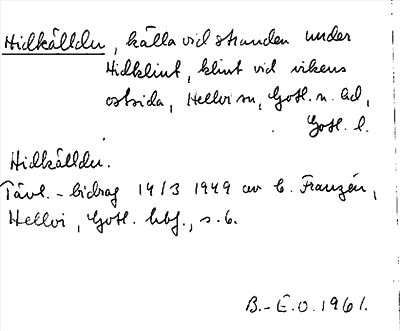 Hidkälldu, källa vid stranden under
Hidklint, klint vid vikens
ostsida, Hellvi sn, Gotl. n. hd,
Gotl. l.
Hidkälldu.
Tävl.-bidrag 14/3 1949 av C. Franzén,
Hellvi, Gotl. hbf., s. 6.
B.-E.O. 1961.